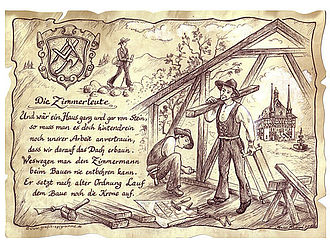 Die Zimmerleute
Und wär ein Haus ganz und gar von Stein,
so muss man es doch hintendrein
noch unsrer Arbeit anvertrain,
dass wir darauf das Dach erbaun.
Weswegen man den Zimmermann
beim Bauen nie entbehren kann.
Er setzt nach alter Ordnung Lauf
dem Baue noch die Krone auf.